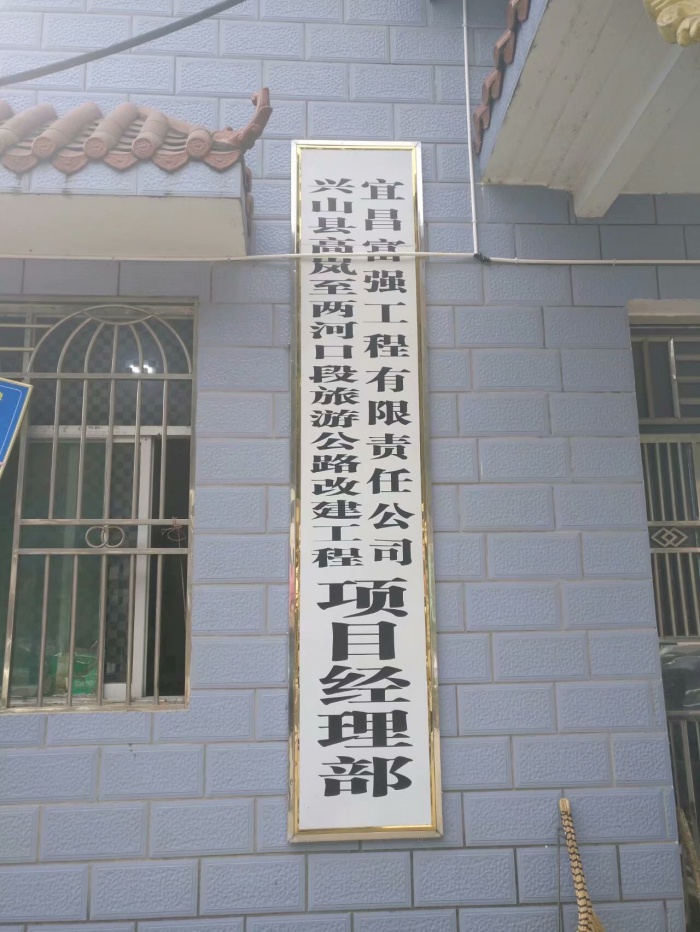 宜昌富强工程有限责任公司
兴山县高岚至两河口段旅游公路改建工程
项目经理部